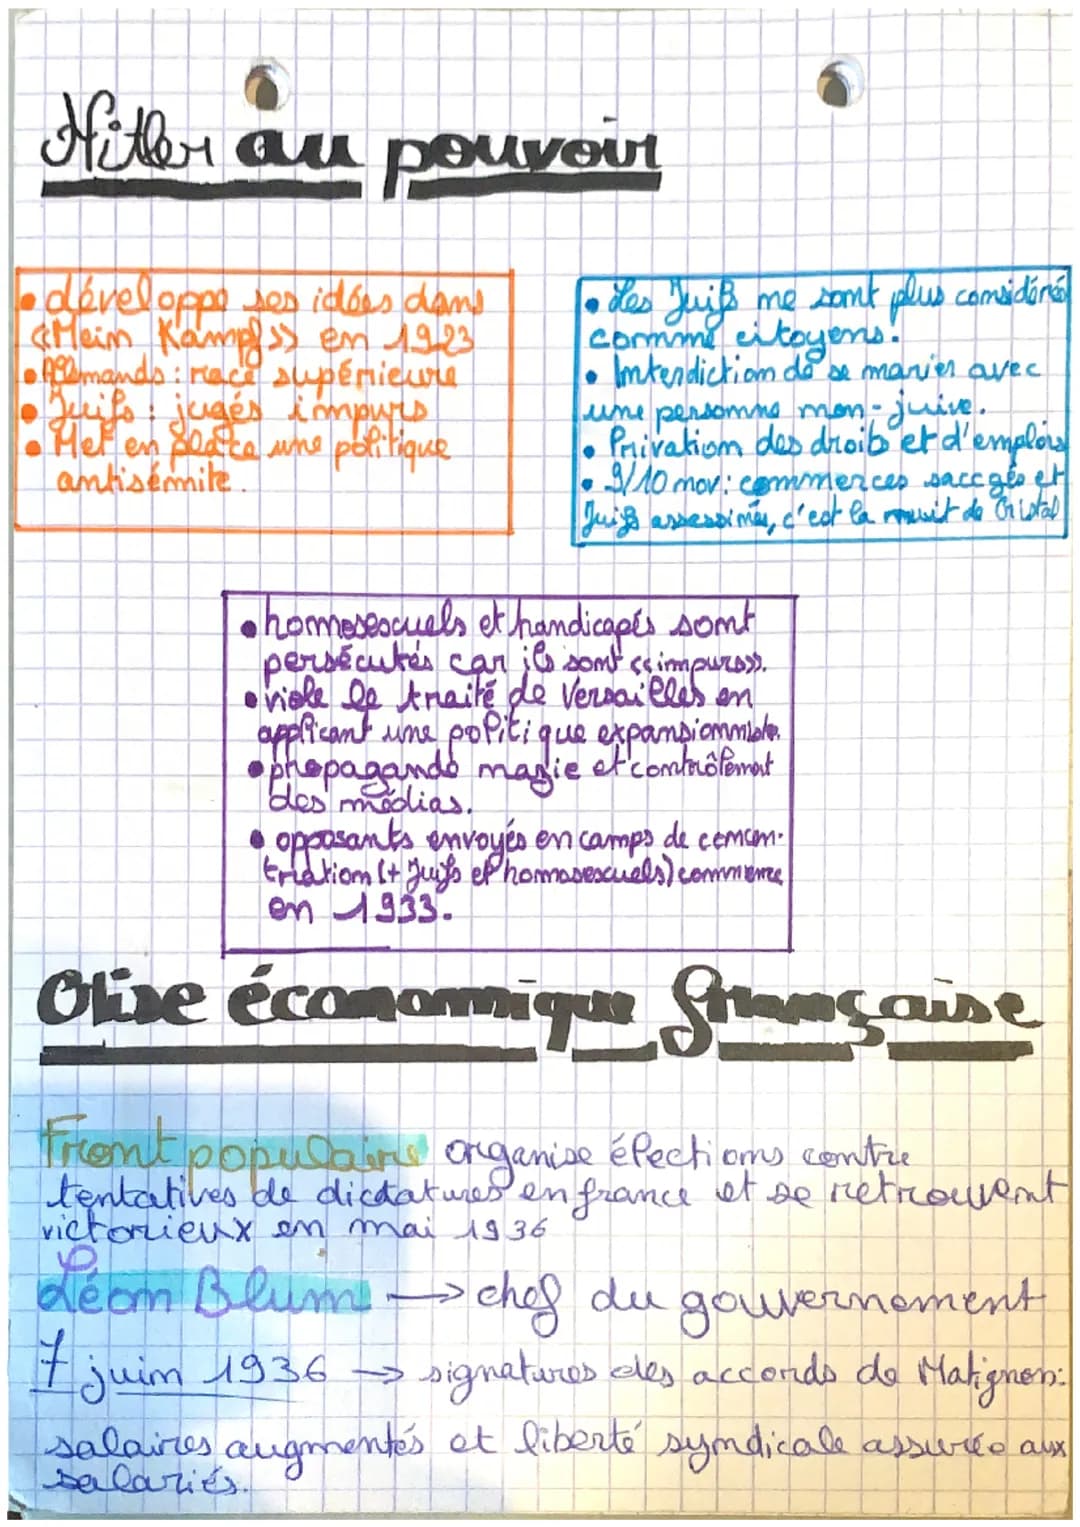 Hitler au pouvoir
• développe ses idées dans
«Mein Kampf» en 1923
• Allemands : race supérieure
• Juifs : jugés impurs
• Met en place une politique
antisémite.
• Les Juifs ne sont plus considérés
comme citoyens.
• Interdiction de se marier avec
une personne non-juive.
• Privation des droits et d'emplois
• 9/10 nov : commerces saccgés et
Juifs assassinés, c'est la nuit de Cristal
• homosexuels et handicapés sont
persécutés car ils sont «impurs».
• viole le traité de Versailles en
applicant une politique expansionniste.
• propagande nazie et contrôlement
des médias.
• opposants envoyés en camps de concen-
tration (+ Juifs et homosexuels) commence
en 1933.
Crise économique française
Front populaire organise élections contre
tentatives de dictatures en france et se retrouvent
victorieux en mai 1936
Léon Blum → chef du gouvernement
7 juin 1936 → signatures des accords de Matignon:
salaires augmentés et liberté syndicale assurée aux
salariés.